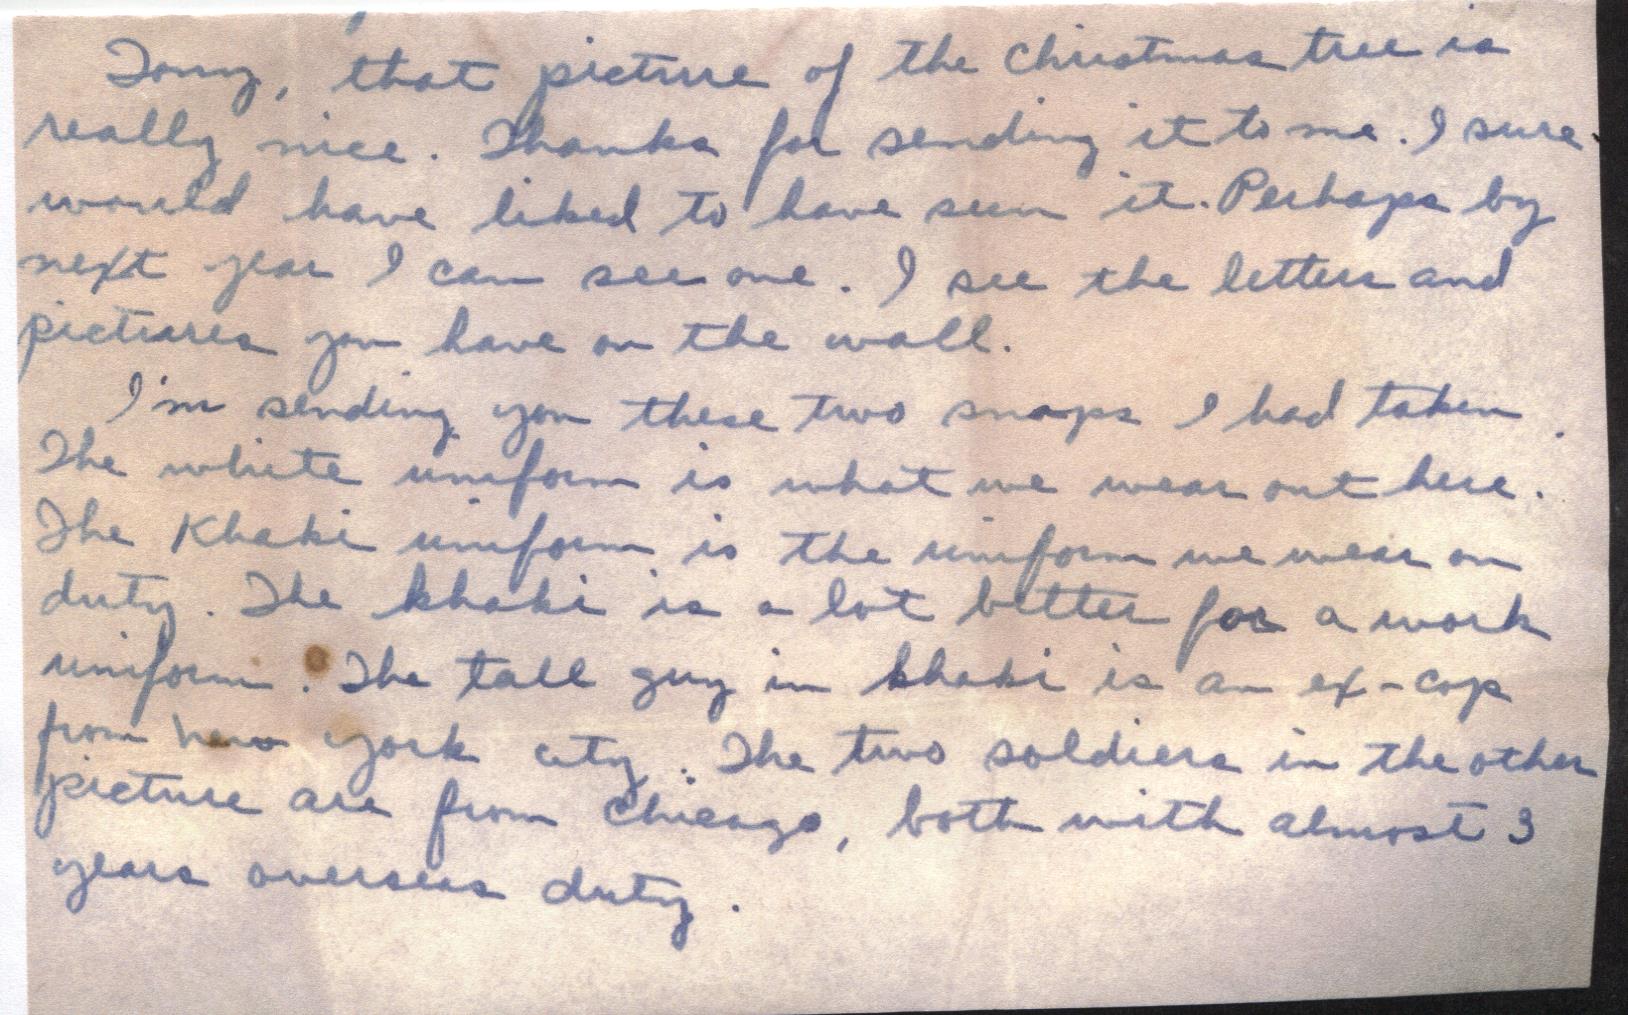 Tony, that picture of the Christmas tree is
really nice. Thanks for sending it to me. I sure
would have liked to have seen it. Perhaps by
next year I can see one. I see the letters and
pictures you have on the wall.
I'm sending you these two snaps I had taken.
The white uniform is what we wear out here.
The Khaki uniform is the uniform we wear on
duty. The khaki is a lot better for a work
uniform. The tall guy in khaki is an ex-cop
from New York city. The two soldiers in the other
picture are from Chicago, both with almost 3
years overseas duty.